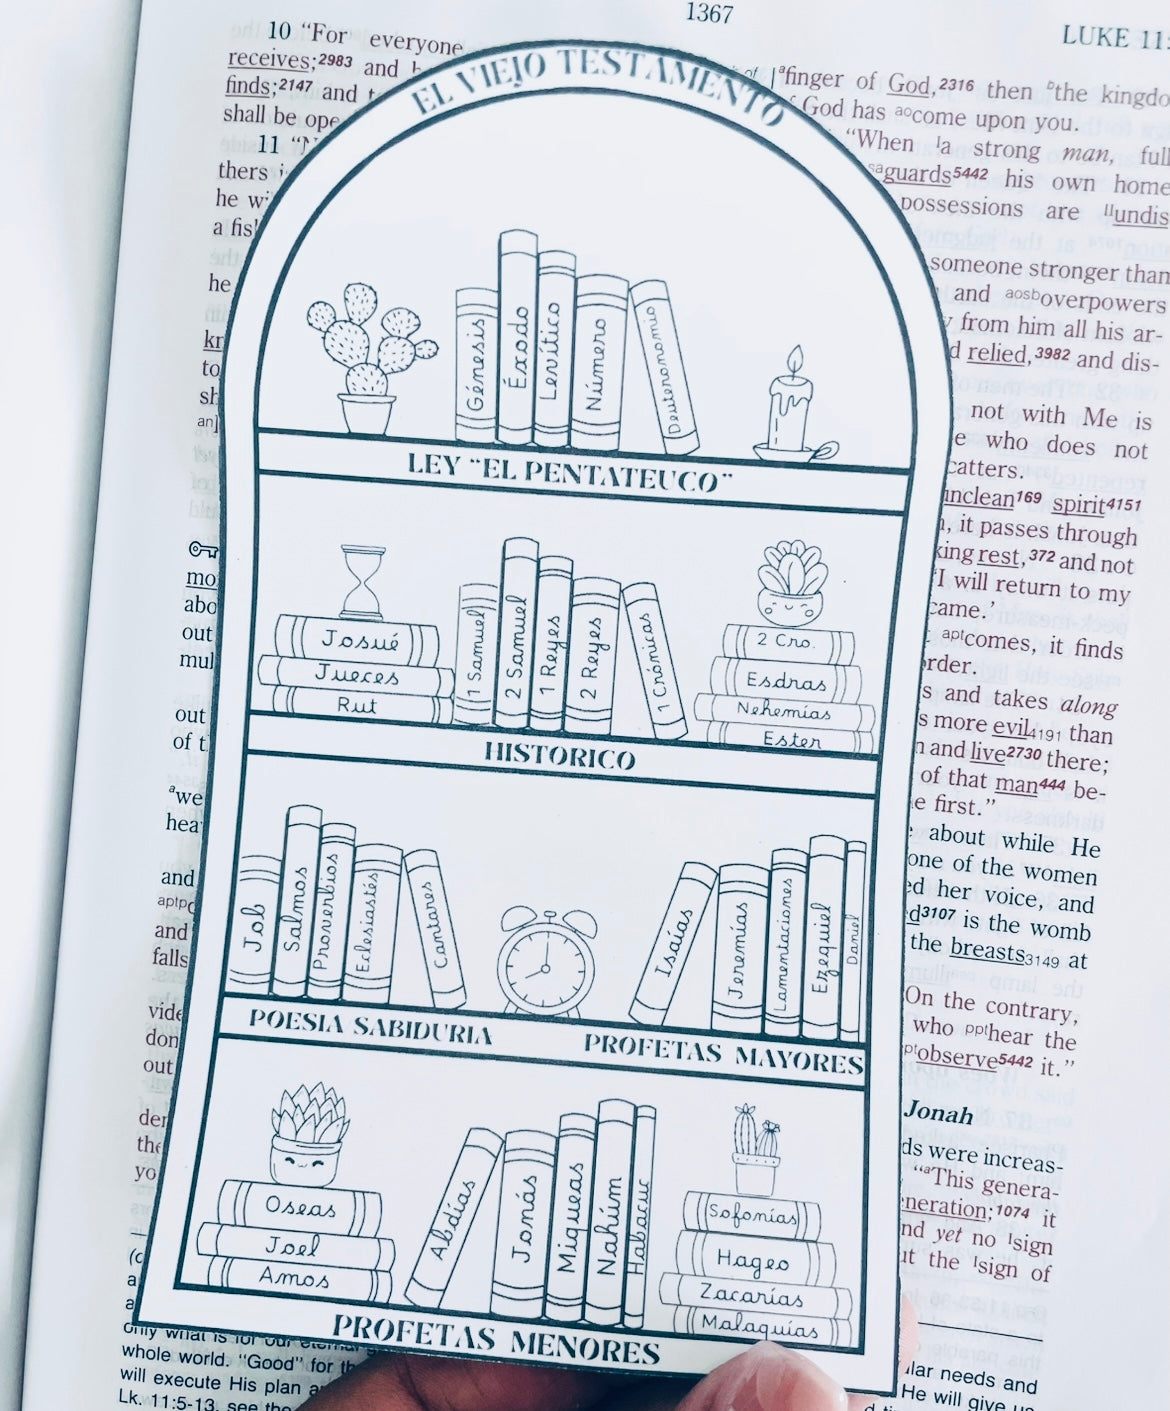 1367
LUKE 11:
10 “For everyone
receives;2983 and
finds;2147 and
shall be ope
11
thers
he
a fis
he
kn
to
sh
an]
mo
abo
out
mul
out
of t
awe
hea
and
aptp
and
falls
vide
don
out
der
the
yo
only what is for our eternal
whole world. “Good” for th
will execute His plan a
Lk. 11:5-13, see the
EL VIEJO TESTAMENTO
Génesis
Éxodo
Levítico
Número
Deuteronomio
LEY “EL PENTATEUCO”
Josué
Jueces
Rut
1 Samuel
2 Samuel
1 Reyes
2 Reyes
1 Crónicas
2 Cro.
Esdras
Nehemías
Ester
HISTORICO
Job
Salmos
Proverbios
Eclesiastés
Cantares
Isaías
Jeremías
Lamentaciones
Ezequiel
Daniel
POESIA SABIDURIA
PROFETAS MAYORES
Oseas
Joel
Amos
Abdías
Jonás
Miqueas
Nahúm
Habacuc
Sofonías
Hageo
Zacarías
Malaquías
PROFETAS MENORES
afinger of God,2316 then bthe kingdo
God has aocome upon you.
“When la strong man, full
saguards5442 his own home
possessions are llundis
someone stronger than
and aosboverpowers
from him all his ar-
relied,3982 and dis-
not with Me is
who does not
catters.
unclean169 spirit4151
it passes through
king rest,372 and not
‘I will return to my
came.’
aptcomes, it finds
order.
s and takes along
s more evil4191 than
and live2730 there;
of that man444 be-
e first.”
about while He
one of the women
ed her voice, and
d3107 is the womb
the breasts3149 at
On the contrary,
who ppthear the
ptobserve5442 it.”
Jonah
ds were increas-
“aThis genera-
neration;1074 it
nd yet no lsign
ut the lsign of
lar needs and
He will give us